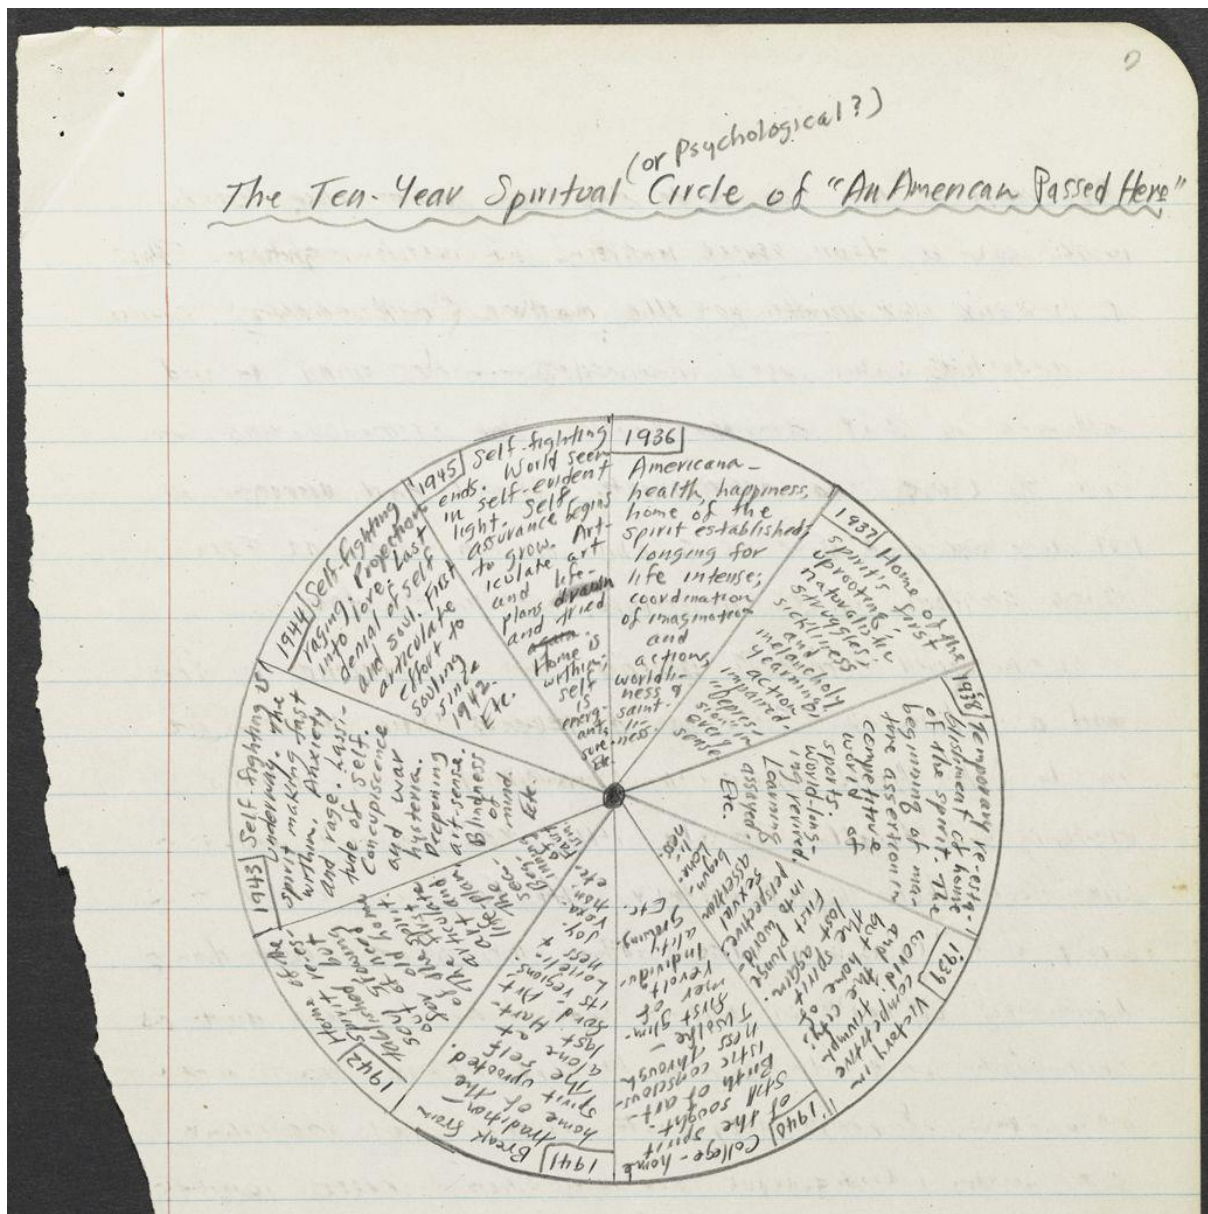 (or Psychological?)
The Ten-Year Spiritual Circle of "An American Passed Here"
1936
Americana—
health, happiness,
home of the
spirit established;
longing for
life intense;
coordination
of imagination
and
actions,
worldli-
ness &
saint-
li-
ness.
1937
Home of the
spirit's first
uprooting;
naturalistic
struggles;
sickliness
and
melancholy
yearnings,
action
impaired.
"depres-
sion" in
every
sense.
1938
Temporary re-esta-
blishment of home
of the spirit. The
beginning of ma-
ture assertion in
competitive
world of
sports.
World-long-
ing revived.
Learning
assayed
Etc.
1939
Victory in
competitive
world
and the triumph
but the city;
the home of
the spirit
lost again.
First plunge
into world-
perspective;
sexual
assertion
begun.
Lone-
li-
ness.
1940
College-home
of the spirit
still sought.
Birth of art-
istic conscious-
ness through
Wolfe—
first glim-
mer of
revolt.
Individu-
ality
growing.
Etc.
1941
Break from
tradition—
home of the
spirit uprooted.
The self
alone at
last
Hart-
ford.
Art
its regions
Loneli-
ness
joy
vexa-
tion.
etc.
1942
Home of the
spirit rees-
tablished but
self growing
out of old home
of the spirit.
First
articulate
art and
life plan.
The
sea.
Beg-
inning
of
Faus-
tian.
1943
Self-fighting is
underway. The
spirit making fast
within. Anxiety
and rage. Lassi-
tude of self.
Concupiscence
and war
hysteria.
Deepening
art-sense.
Blindness
of
mind.
Etc.
1944
Self-fighting
raging. Projection
into love: Last
denial of self
and soul. First
articulate
effort to
souling
since
1942.
Etc.
1945
Self-fighting
ends. World seen
in self-evident
light. Self
assurance begins
to grow. Art-
iculate art
and life-
plans drawn
and tried
again.
Home is
within;
self
is
energ-
sure.
Etc.